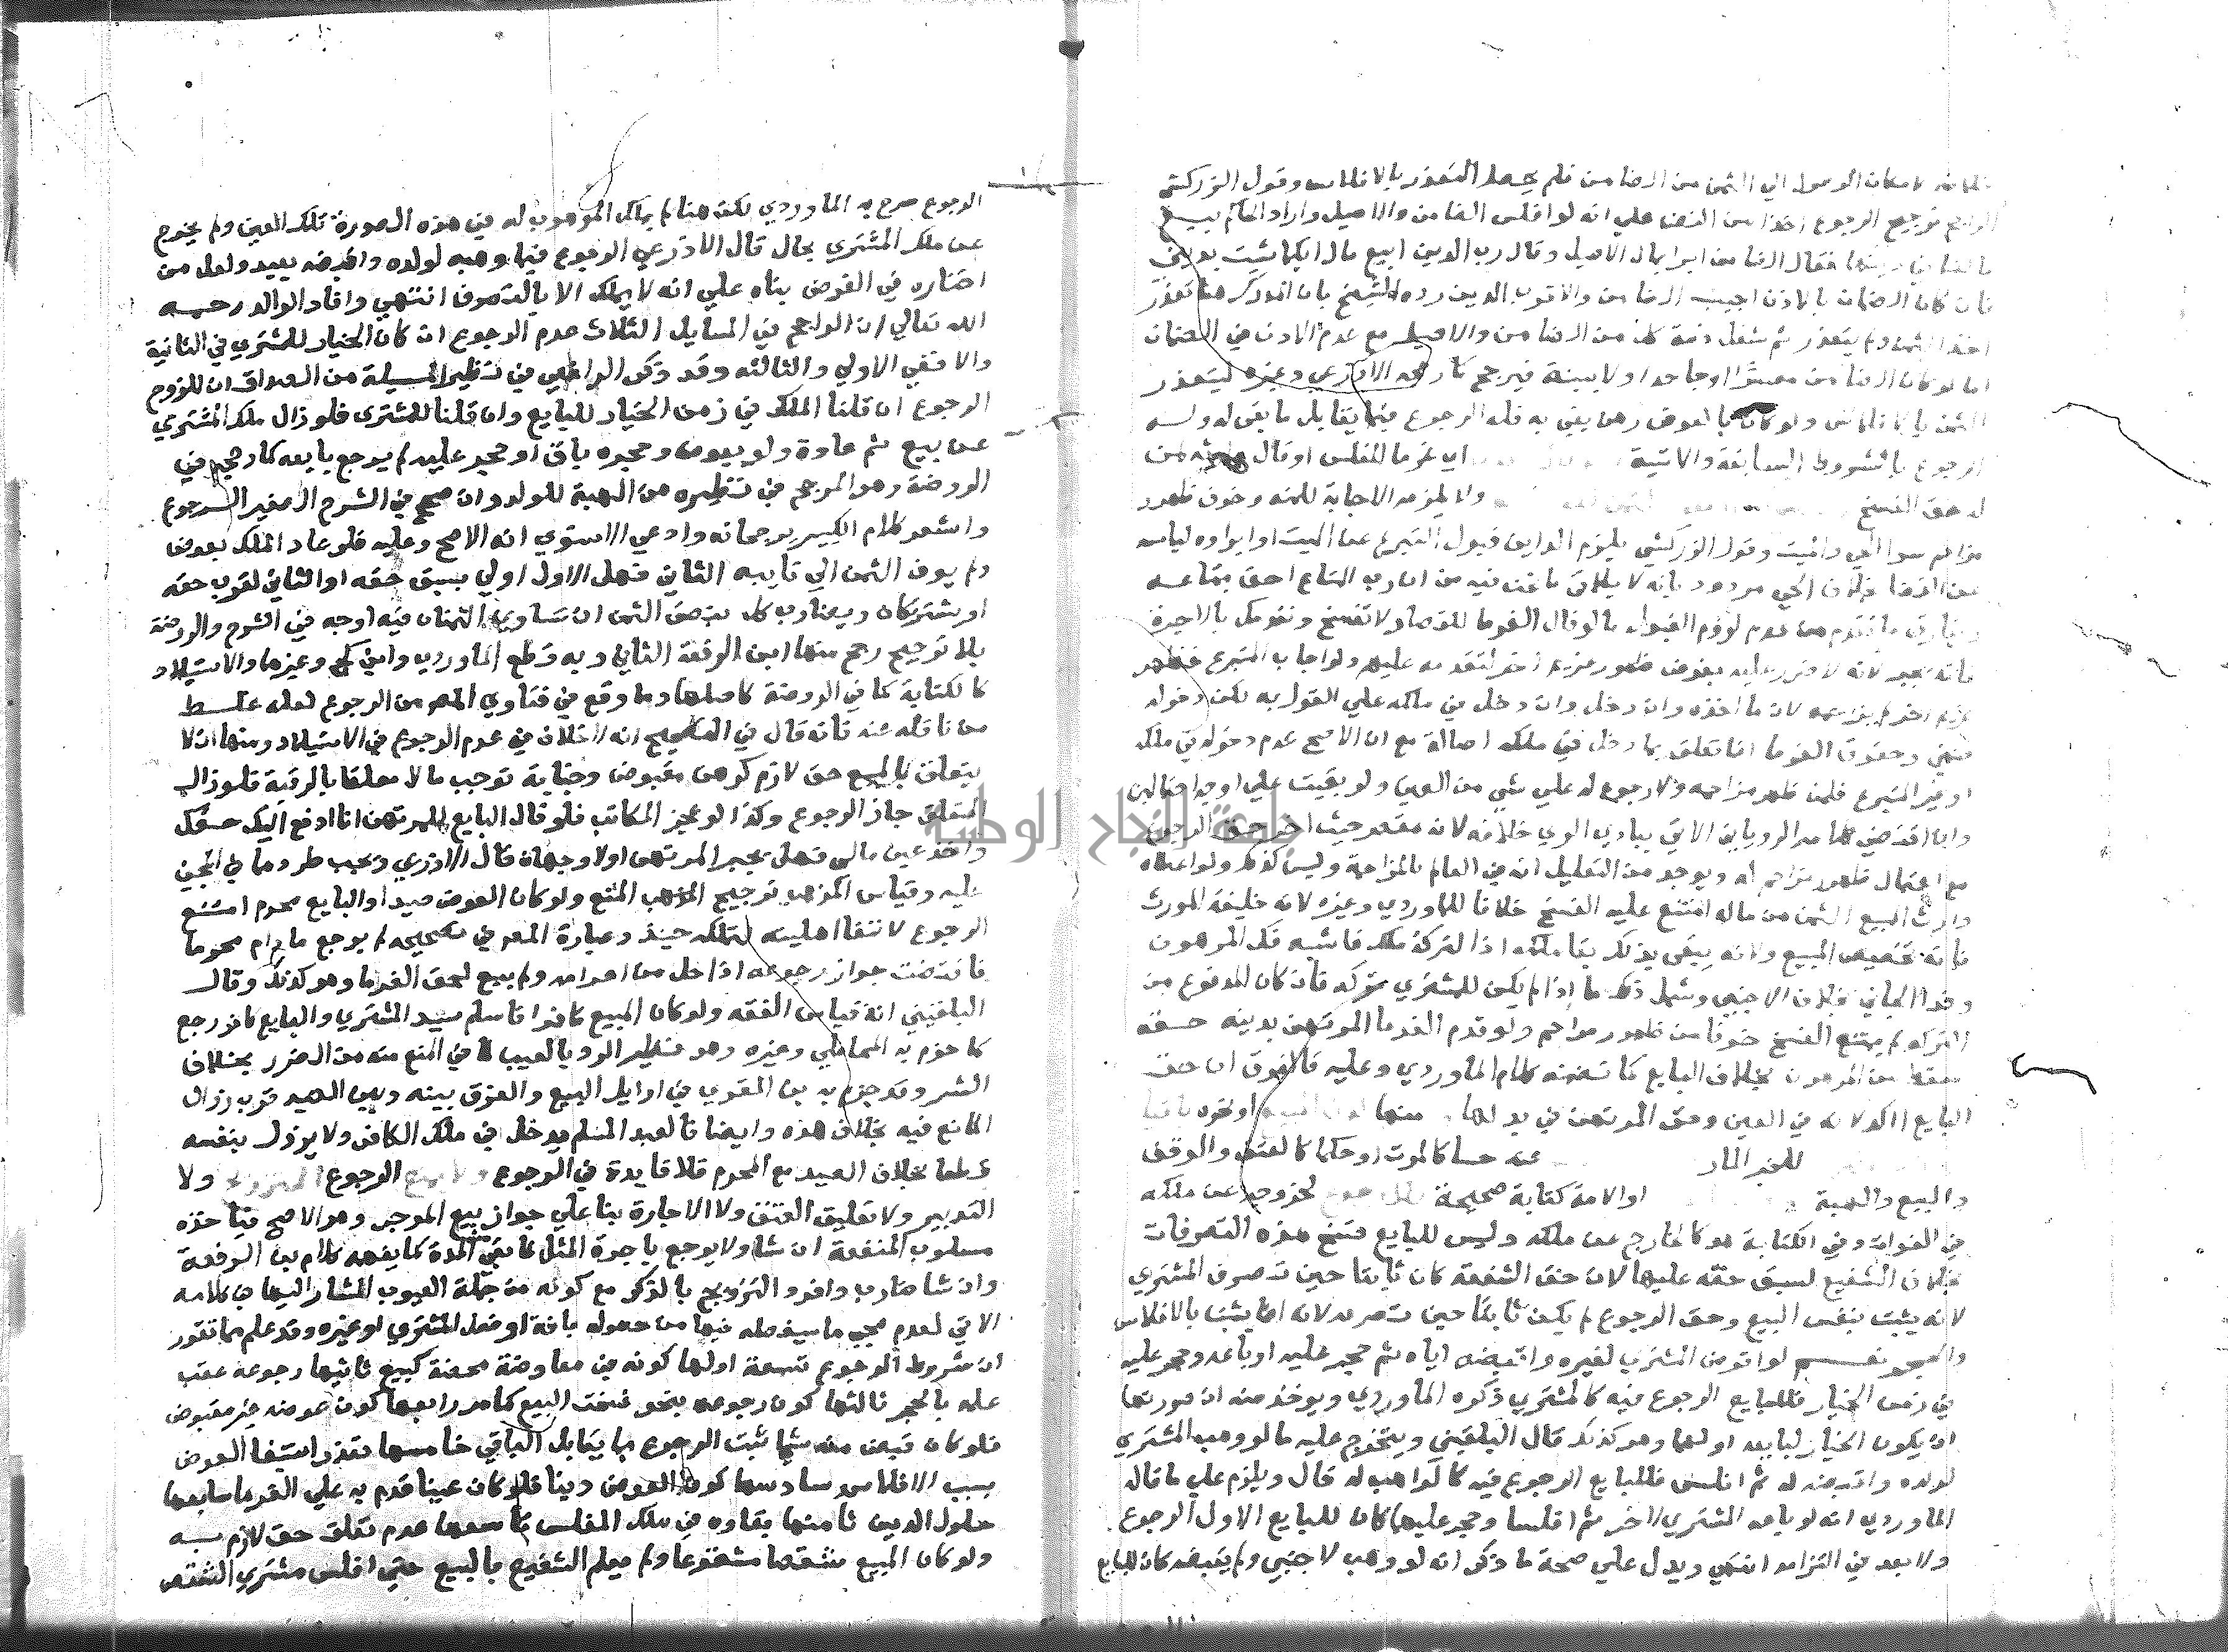 لامكان الوصول الي الثمن من الضامن فلم يحصل التعذر بالافلاس وقول الزركشي
الراجح ترجيح الرجوع اخذا من النص علي انه لو افلس الضامن والاصيل واراد الحاكم بيع
فقال الضامن ابدا بمال الاصيل وقال رب الدين ابيع مال ايكما شيت بديني
فان كان الضمان بالاذن اجيب الضامن والا فرب الدين رده الشيخ بان المدرك هنا تعذر
اخذ الثمن ولم يتعذر ثم شغل ذمة كل من الضامن والاصيل مع عدم الاذن في الضمان
اما لو كان الضامن معسرا او جاحدا ولا بينة فيرجع كما رجحه الاذرعي وغيره لتعذر
الثمن بالافلاس ولو كان بالعوض رهن يفي به فله الرجوع فيما يقابل ما بقي له وله
الرجوع بالشروط السابقة والاتية اي غرما المفلس او قال
له حق الفسخ ولا يلزمه الاجابة للمنه وخوف ظهور
مزاحم سوا الحي والميت وقول الزركشي يلزم الداين قبول التبرع عن الميت او ابراوه لياسه
عن القضا بخلاف الحي مردود بانه لا يلاقي ما نحن فيه من ان رب المتاع احق بمتاعه
ويفارق ما تقدم من عدم لزوم القبول ما لو قال الغرما للقصار لا تفسخ ونقدمك بالاجرة
فانه يجبر لانه لا ضرر عليه بفرض ظهور غريم اخر لتقدمه عليهم ولو اجاب المتبرع فظهر
غريم اخر لم يزاحمه لان ما اخذه وان دخل وان دخل في ملكه علي القول به لكن دخوله
ضمني وحقوق الغرما انما تعلق بما دخل في ملكه اصالة مع ان الاصح عدم دخوله في ملكه
او غير المتبرع فلمن ظهر مزاحمه ولا رجوع له علي شي من العين ولو بقيت علي اوجه احتمالين
وان اقتضي كلامه الروياني الاتي ببادي الراي خلافه لانه مقصر حيث اخر حق الرجوع
مع احتمال ظهور مزاحم له ويوخذ من التعليل انه في العالم بالمزاحمة وليس كذلك ولو اعطاه
وارث المبيع الثمن من ماله امتنع عليه الفسخ خلافا للماوردي وغيره لانه خليفة المورث
فله تخليص المبيع ولانه يبقي بذلك بقا ملكه اذ التركة ملكه فاشبه فك المرهون
وفدا الجاني بخلاف الاجنبي وشمل ذلك ما اذا لم يكن للمشتري تركه فان كان المدفوع من
التركه لم يمتنع الفسخ خوفا من ظهور مزاحم ولو قدم الغرما المرتهن بدينه حقه
سقط من المرهون بخلاف البايع كما تضمنه كلام الماوردي وعليه فالفرق ان حق
البايع اكد لانه في العين وحق المرتهن في بدلها منها او نحوه باقيا
للخبر المار عنه حسا كالموت او حكما كالعتق والوقف
والبيع والهبة او الامة كتابة صحيحة لخروجه عن ملكه
في الفوات وفي الكتابة هو كالخارج عن ملكه وليس للبايع فسخ هذه التصرفات
بخلاف الشفيع لسبق حقه عليها لان حق الشفعة كان ثابتا حين تصرف المشتري
لانه يثبت بنفس البيع وحق الرجوع لم يكن ثابتا حين تصرفه لانه انما يثبت بالافلاس
والحجر نعم لو اقرض المشتري لغيره واقبضه اياه ثم حجر عليه او باعه وحجر عليه
في زمن الخيار فللبايع الرجوع فيه كالمشتري ذكره الماوردي ويوخذ منه ان صورتها
ان يكون الخيار لبايعه او لهما وهو كذلك قال البلقيني ويتخرج عليه ما لو وهب المشتري
لولده واقبضه له ثم افلس فللبايع الرجوع فيه كالواهب له قال ويلزم علي ما قاله
الماوردي انه لو باعه المشتري لاخر ثم افلسا وحجر عليهما كان للبايع الاول الرجوع
ولا بعد في التزامه انتهي ويدل علي صحة ما ذكر انه لو وهب لاجنبي ولم يقبضه كان للبايع
الرجوع صرح به الماوردي لكن هنا لم يملك الموهوب له في هذه الصورة تلك العين ولم يخرج
عن ملك المشتري بحال قال الاذرعي الرجوع فيما وهبه لولده واقرضه بعيد ولعل من
اختاره في القرض بناه علي انه لا يملك الا بالتصرف انتهي وافاد الوالد رحمه
الله تعالي ان الراجح في المسايل الثلاث عدم الرجوع ان كان الخيار للمشتري في الثانية
والا ففي الاولي والثالثه وقد ذكر الرافعي في نظير المسيلة من الصداق ان للزوج
الرجوع ان قلنا الملك في زمن الخيار للبايع وان قلنا للمشتري فلو زال ملك المشتري
عن بيع ثم عاد ولو بعوض وحجره باق او حجر عليه لم يرجع بايعه كما رجحه في
الروضة وهو المرجح في نظيره من الهبة للولد وان صحح في الشرح الصغير الرجوع
واشعر كلام الكبير برجحانه وادعي الاسنوي انه الاصح وعليه فلو عاد الملك بعوض
ولم يوف الثمن الي بايعه الثاني فهل الاول اولي بسبق حقه او الثاني لقرب حقه
او يشتركان ويضارب كل بنصف الثمن ان تساوي الثمنان فيه اوجه في الشرح والروضة
بلا ترجيح رجح منها ابن الرفعة الثاني وبه قطع الماوردي وابن كج وغيرهما والاستيلاد
كالكتابة كما في الروضة كاصلها وما وقع في فتاوي المصر من الرجوع لعله غلط
من ناقله عنه فانه قال في التصحيح انه لا خلاف في عدم الرجوع في الاستيلاد ومنها ان لا
يتعلق بالمبيع حق لازم كرهن مقبوض وجناية توجب مالا معلقا بالرقبة فلو زال
المتعلق جاز الرجوع وكذا لو عجز المكاتب فلو قال البايع للمرتهن انا ادفع اليك حقك
واخذ عين مالي فهل يجبر المرتهن او لا وجهان قال الاذرعي ويجب طردهما في المجني
عليه وقياس المذهب ترجيح المنع ولو كان العوض صيدا والبايع محرم امتنع
الرجوع لانتفا اهليته لتملكه حينئذ وعبارة المصر في تصحيحه لم يرجع ما دام محرما
فاقتضت جواز رجوعه اذا حل من احرامه ولم يبع لحق الغرما وهو كذلك وقال
البلقيني انه قياس الفقه ولو كان المبيع كافرا فاسلم بيد المشتري والبايع كافر رجع
كما جزم به المحاملي وغيره وهو نظير الرد بالعيب لما في المنع منه من الضرر بخلاف
الشر وقد جزم به بن المقري في اوايل البيع والفرق بينه وبين الصيد قرب زوال
المانع فيه بخلاف هذه وايضا فالعبد المسلم يدخل في ملك الكافر ولا يزول بنفسه
قطعا بخلاف الصيد مع المحرم فلا فايدة في الرجوع ولا يمنع الرجوع التزويج ولا
التدبير ولا تعليق العتق ولا الاجارة بنا علي جواز بيع الموجر وهو الاصح فياخذه
مسلوب المنفعة ان شا ولا يرجع باجرة المثل لما بقي المدة كما يفهمه كلام بن الرفعة
وان شا ضارب وافرد التزويج بالذكر مع كونه من جملة العيوب المشار اليها في كلامه
الاتي لعدم مجي ما سيفصله فيها من حصوله بافة او فعل المشتري او غيره وقد علم مما تقرر
ان شروط الرجوع تسعة اولها كونه في معاوضة محضة كبيع ثانيها رجوعه عقب
علمه بالحجر ثالثها كون رجوعه بنحو فسخت البيع كما مر رابعها كون عوضه غير مقبوض
فلو كان قبض منه شيا ثبت الرجوع بما يقابل الباقي خامسها تعذر استيفا العوض
بسبب الافلاس سادسها كون العوض دينا فلو كان عينا قدم به علي الغرما سابعها
حلول الدين ثامنها بقاوه في ملك المفلس تاسعها عدم تعلق حق لازم به
ولو كان المبيع شقصا مشفوعا ولم يعلم الشفيع بالبيع حتي افلس مشتري الشقص
جامعة النجاح الوطنية